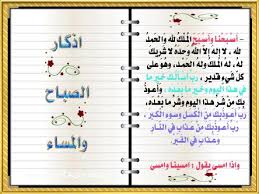 - أصبحنا وأصبح المُلكُ لله والحَمدُ
لله ، لا إله إلا الله وَحدَهُ لا شَريكَ
لهُ ، لهُ المُلكُ ولهُ الحَمدُ، وهوَ على
كل شيءٍ قدير ، رب أسألك خير ما
في هذا اليوم وخير ما بعده ، وأعوذ
بك من شر هذا اليوم وشر ما بعده،
رب أعوذبك من الكسل وسوء الكبر ،
رب أعوذبك من عذاب في النار
وعذاب في القبر
واذا امسى يقول : امسينا وامسى
اذكار
الصباح
والمساء